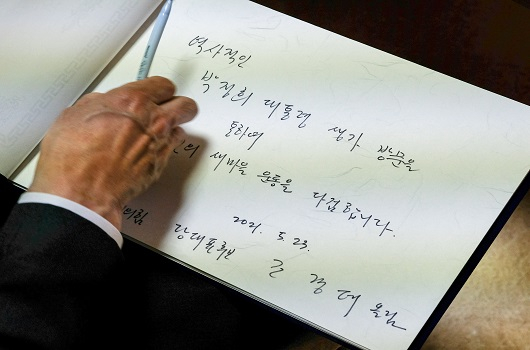 역사적인
박정희 대통령 생가 방문을
통하여
새마을 운동을 다짐합니다.
2021. 5. 23.
의힘 당대표후보 올림